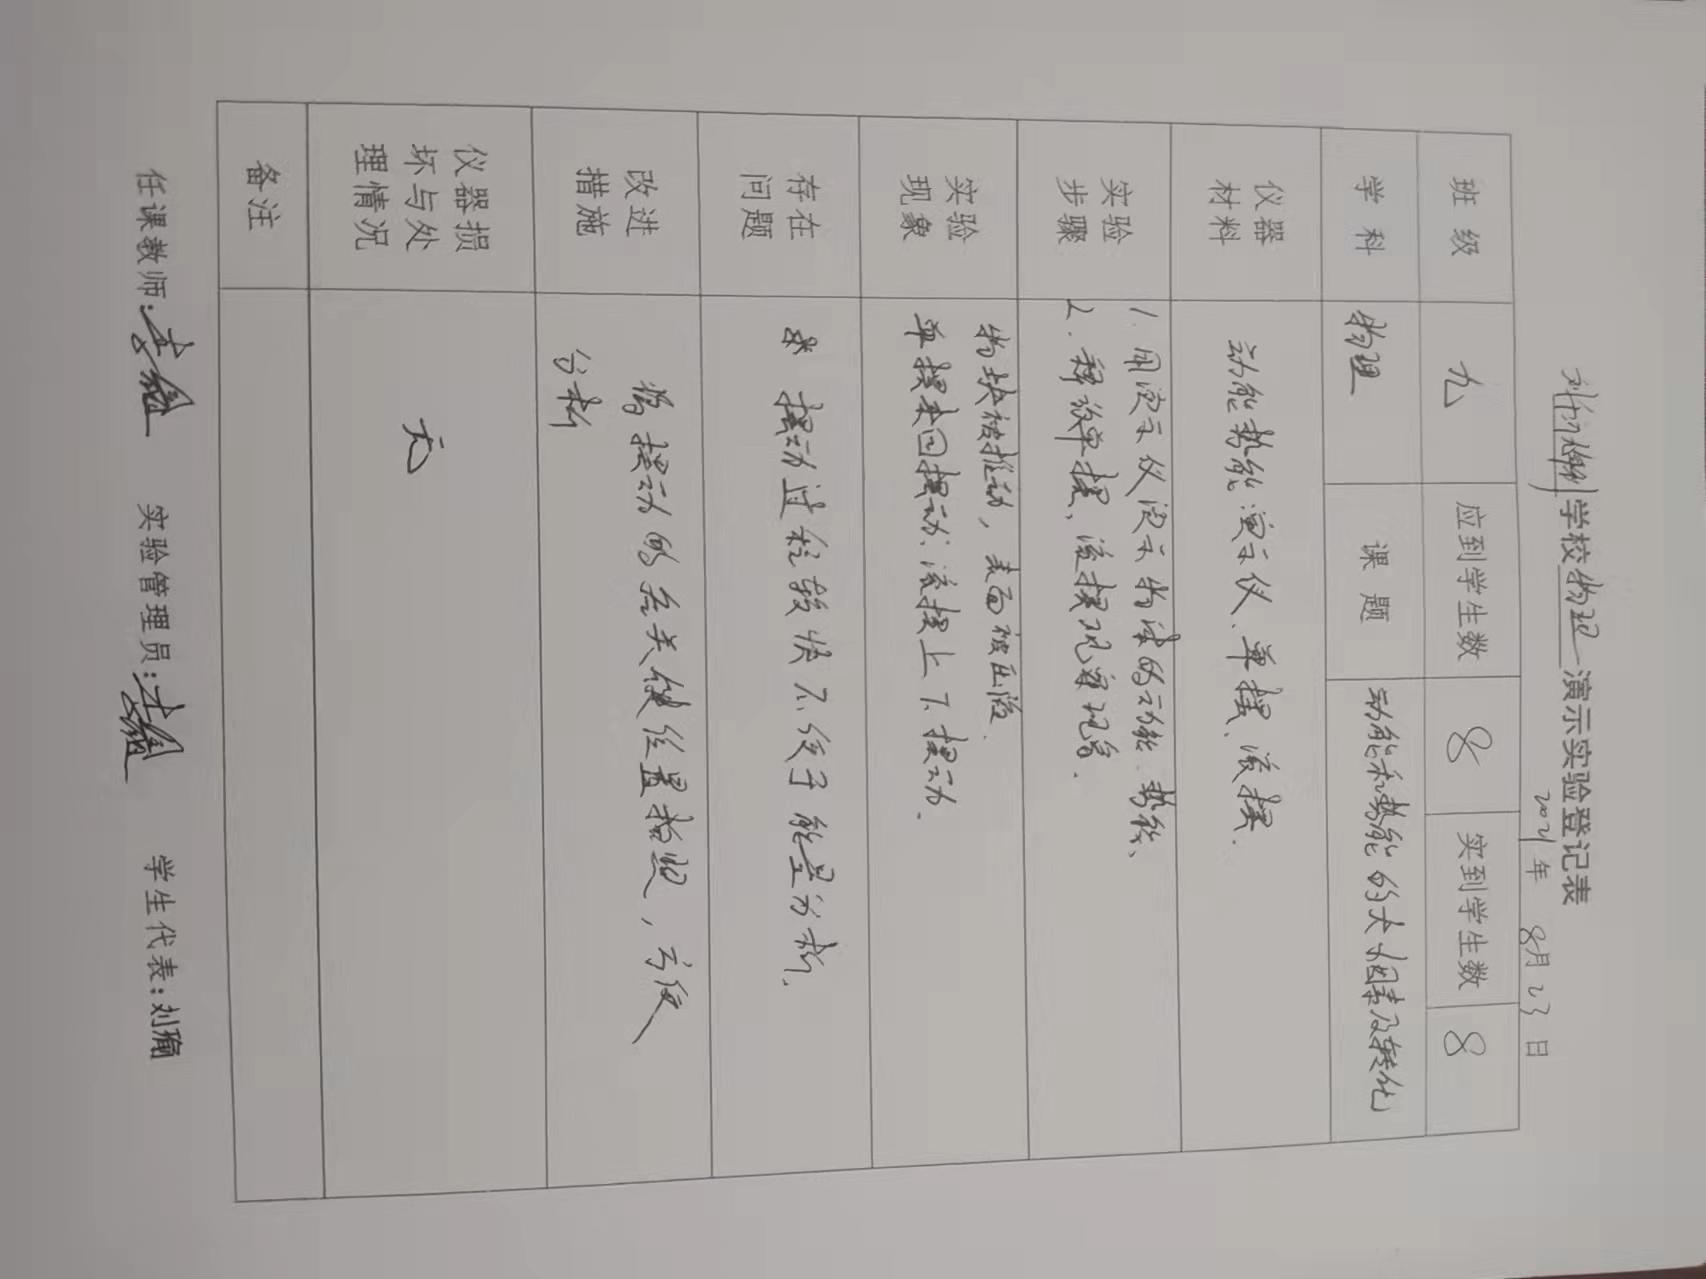 学校物理演示实验登记表
2021年 8月23日
班级 九 应到学生数 8 实到学生数 8
学科 物理 课题 动能和势能的大小因素及转化
仪器
材料
动能势能演示仪、单摆、滚摆.
实验
步骤
1. 用演示仪演示物体的动能、势能、
2. 释放单摆、滚摆观察现象.
实验
现象
物块被推动，表面被压陷.
单摆来回摆动、滚摆上下摆动.
存在
问题
摆动过程较快不便于能量分析.
改进
措施
将摆动的各关键位置拍照，方便
分析
仪器损
坏与处
理情况
无
备注
任课教师： 实验管理员： 学生代表：刘